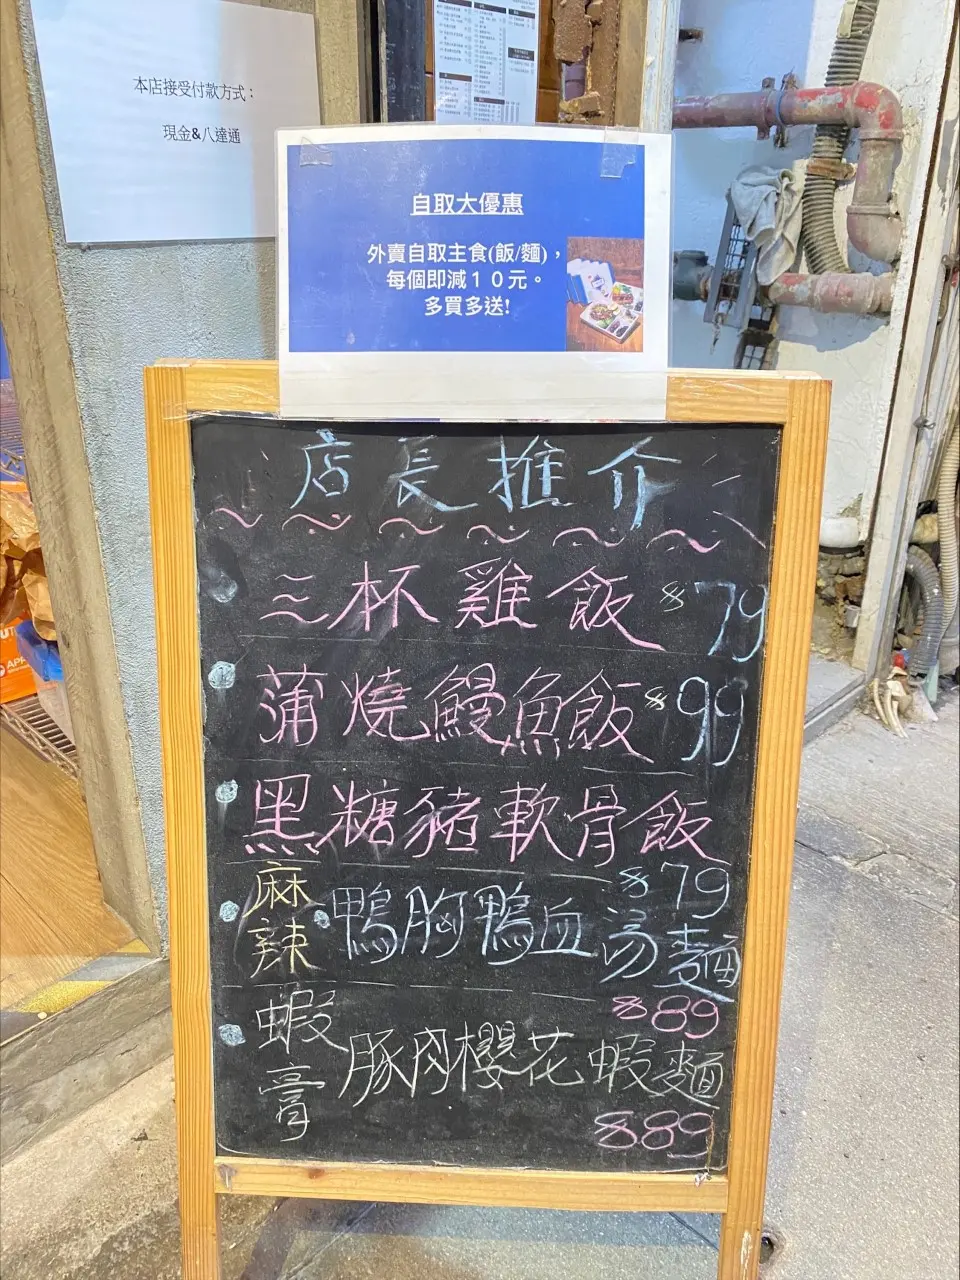 本店接受付款方式：
現金&八達通
自取大優惠
外賣自取主食(飯/麵)，
每個即減１０元。
多買多送!
店長推介
三杯雞飯 $79
蒲燒鰻魚飯 $99
黑糖豬軟骨飯
$79
麻辣 鴨胸鴨血湯麵
$89
蝦膏 豚肉櫻花蝦麵
$89